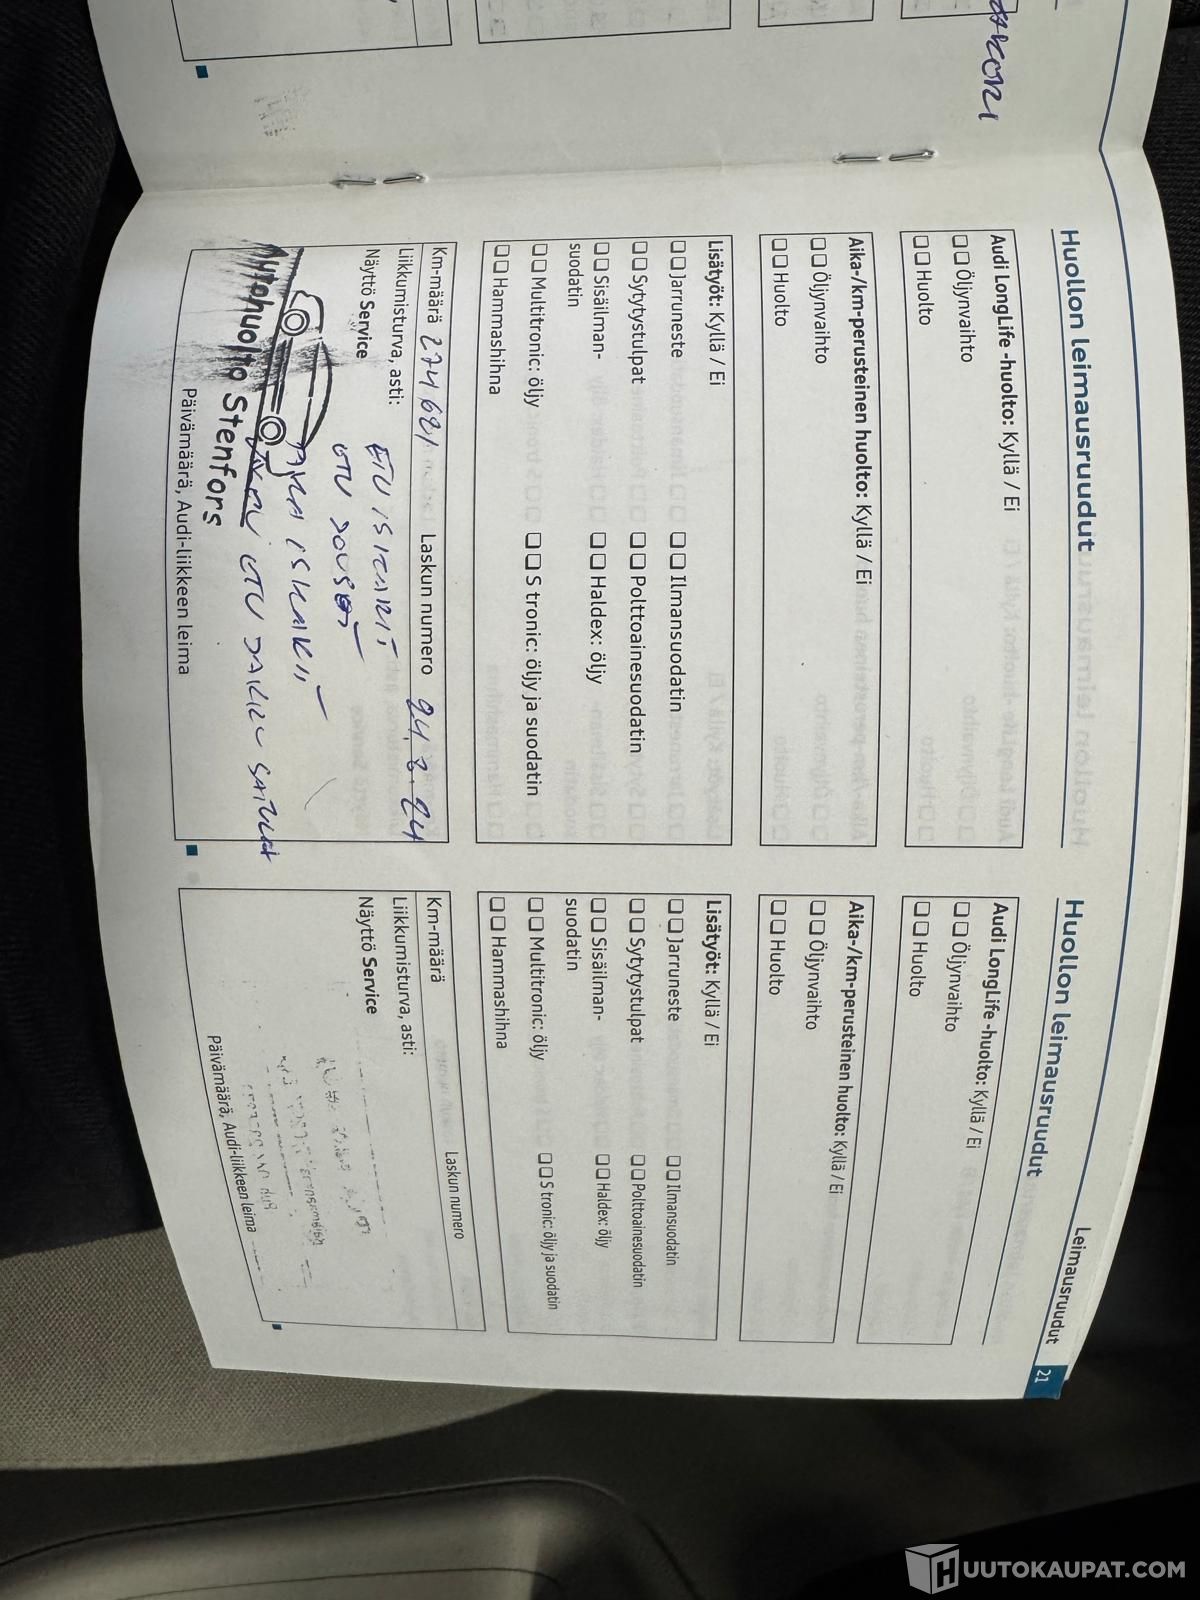 AKORI
Leimausruudut
21
Huollon leimausruudut
Audi LongLife -huolto: Kyllä / Ei
Öljynvaihto
Huolto
Aika-/km-perusteinen huolto: Kyllä / Ei
Öljynvaihto
Huolto
Lisätyöt: Kyllä / Ei
Jarruneste
Ilmansuodatin
Sytytystulpat
Polttoainesuodatin
Sisäilman-
suodatin
Haldex: öljy
Multitronic: öljy
S tronic: öljy ja suodatin
Hammashihna
Km-määrä 274621
Laskun numero 24.2.24
Liikkumisturva, asti:
Näyttö Service
ETU ISKARIT
ETU JOUSET
ETU
Autohuolto Stenfors
Päivämäärä, Audi-liikkeen leima
Huollon leimausruudut
Audi LongLife -huolto: Kyllä / Ei
Öljynvaihto
Huolto
Aika-/km-perusteinen huolto: Kyllä / Ei
Öljynvaihto
Huolto
Lisätyöt: Kyllä / Ei
Jarruneste
Ilmansuodatin
Sytytystulpat
Polttoainesuodatin
Sisäilman-
suodatin
Haldex: öljy
Multitronic: öljy
S tronic: öljy ja suodatin
Hammashihna
Km-määrä
Laskun numero
Liikkumisturva, asti:
Näyttö Service
Päivämäärä, Audi-liikkeen leima
HUUTOKAUPAT.COM